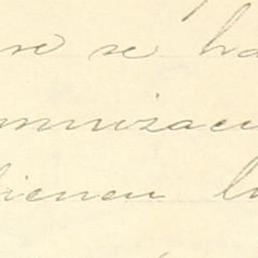 re se ha
mnizaci
bienen l